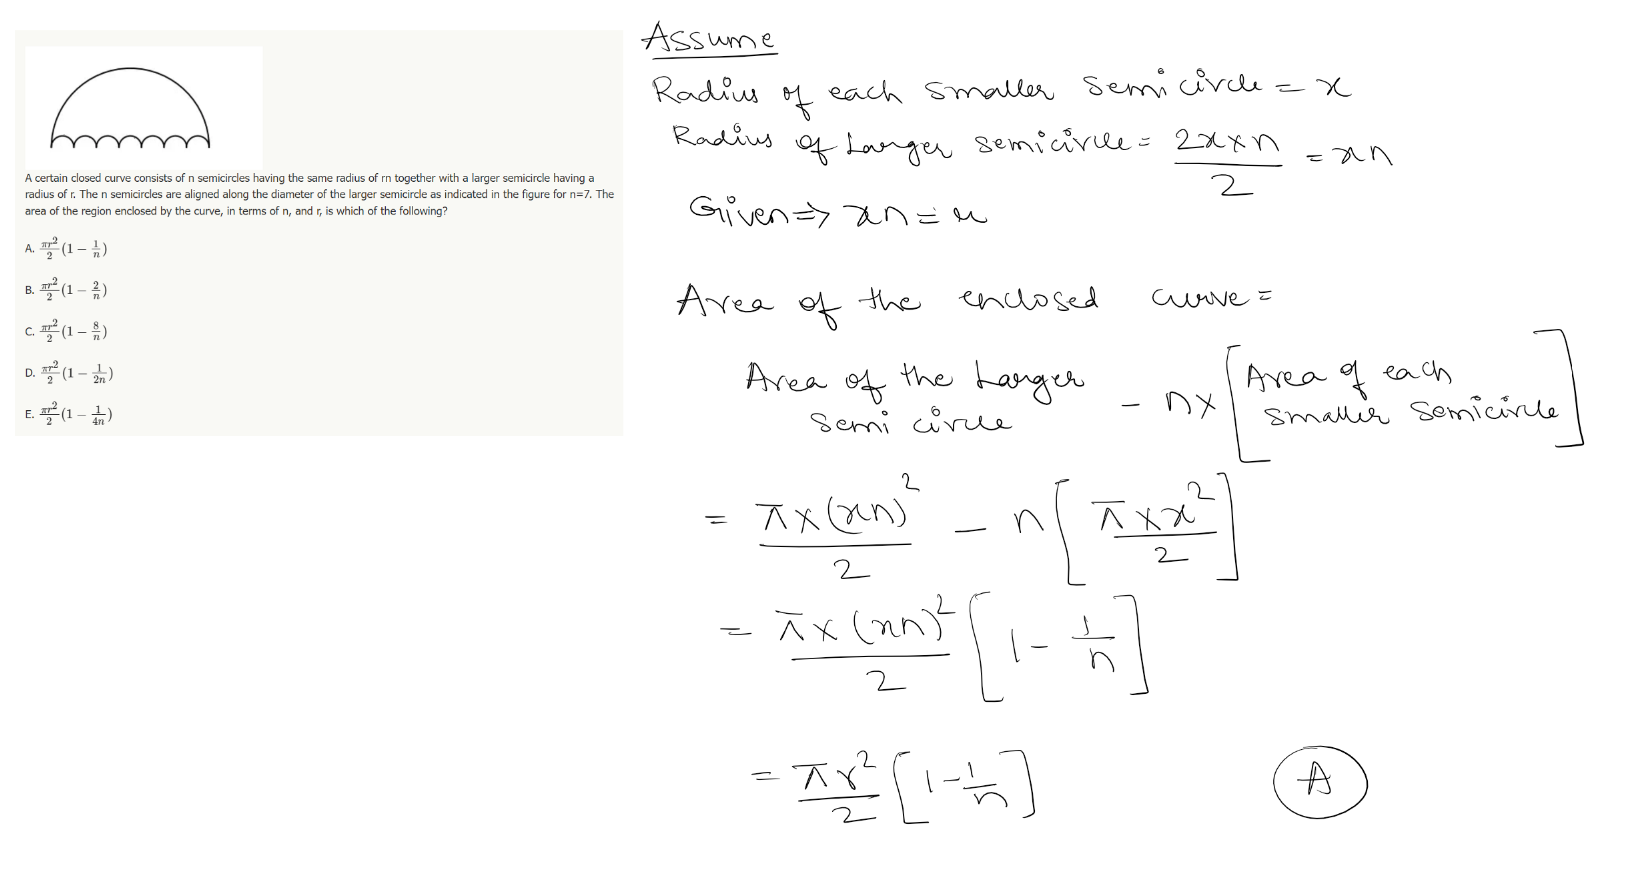 A certain closed curve consists of n semicircles having the same radius of rn together with a larger semicircle having a
radius of r. The n semicircles are aligned along the diameter of the larger semicircle as indicated in the figure for n=7. The
area of the region enclosed by the curve, in terms of n, and r, is which of the following?
A. πr²/2 (1 − 1/n)
B. πr²/2 (1 − 2/n)
C. πr²/2 (1 − 8/n)
D. πr²/2 (1 − 1/2n)
E. πr²/2 (1 − 1/4n)
Assume
Radius of each smaller semicircle = x
Radius of Larger semicircle = 2x×n/2 = xn
Given ⇒ xn = r
Area of the enclosed curve =
Area of the Larger semi circle − n× [Area of each smaller semicircle]
= π×(xn)²/2 − n [π×x²/2]
= π×(xn)²/2 [1 − 1/n]
= πr²/2 [1 − 1/n]
A